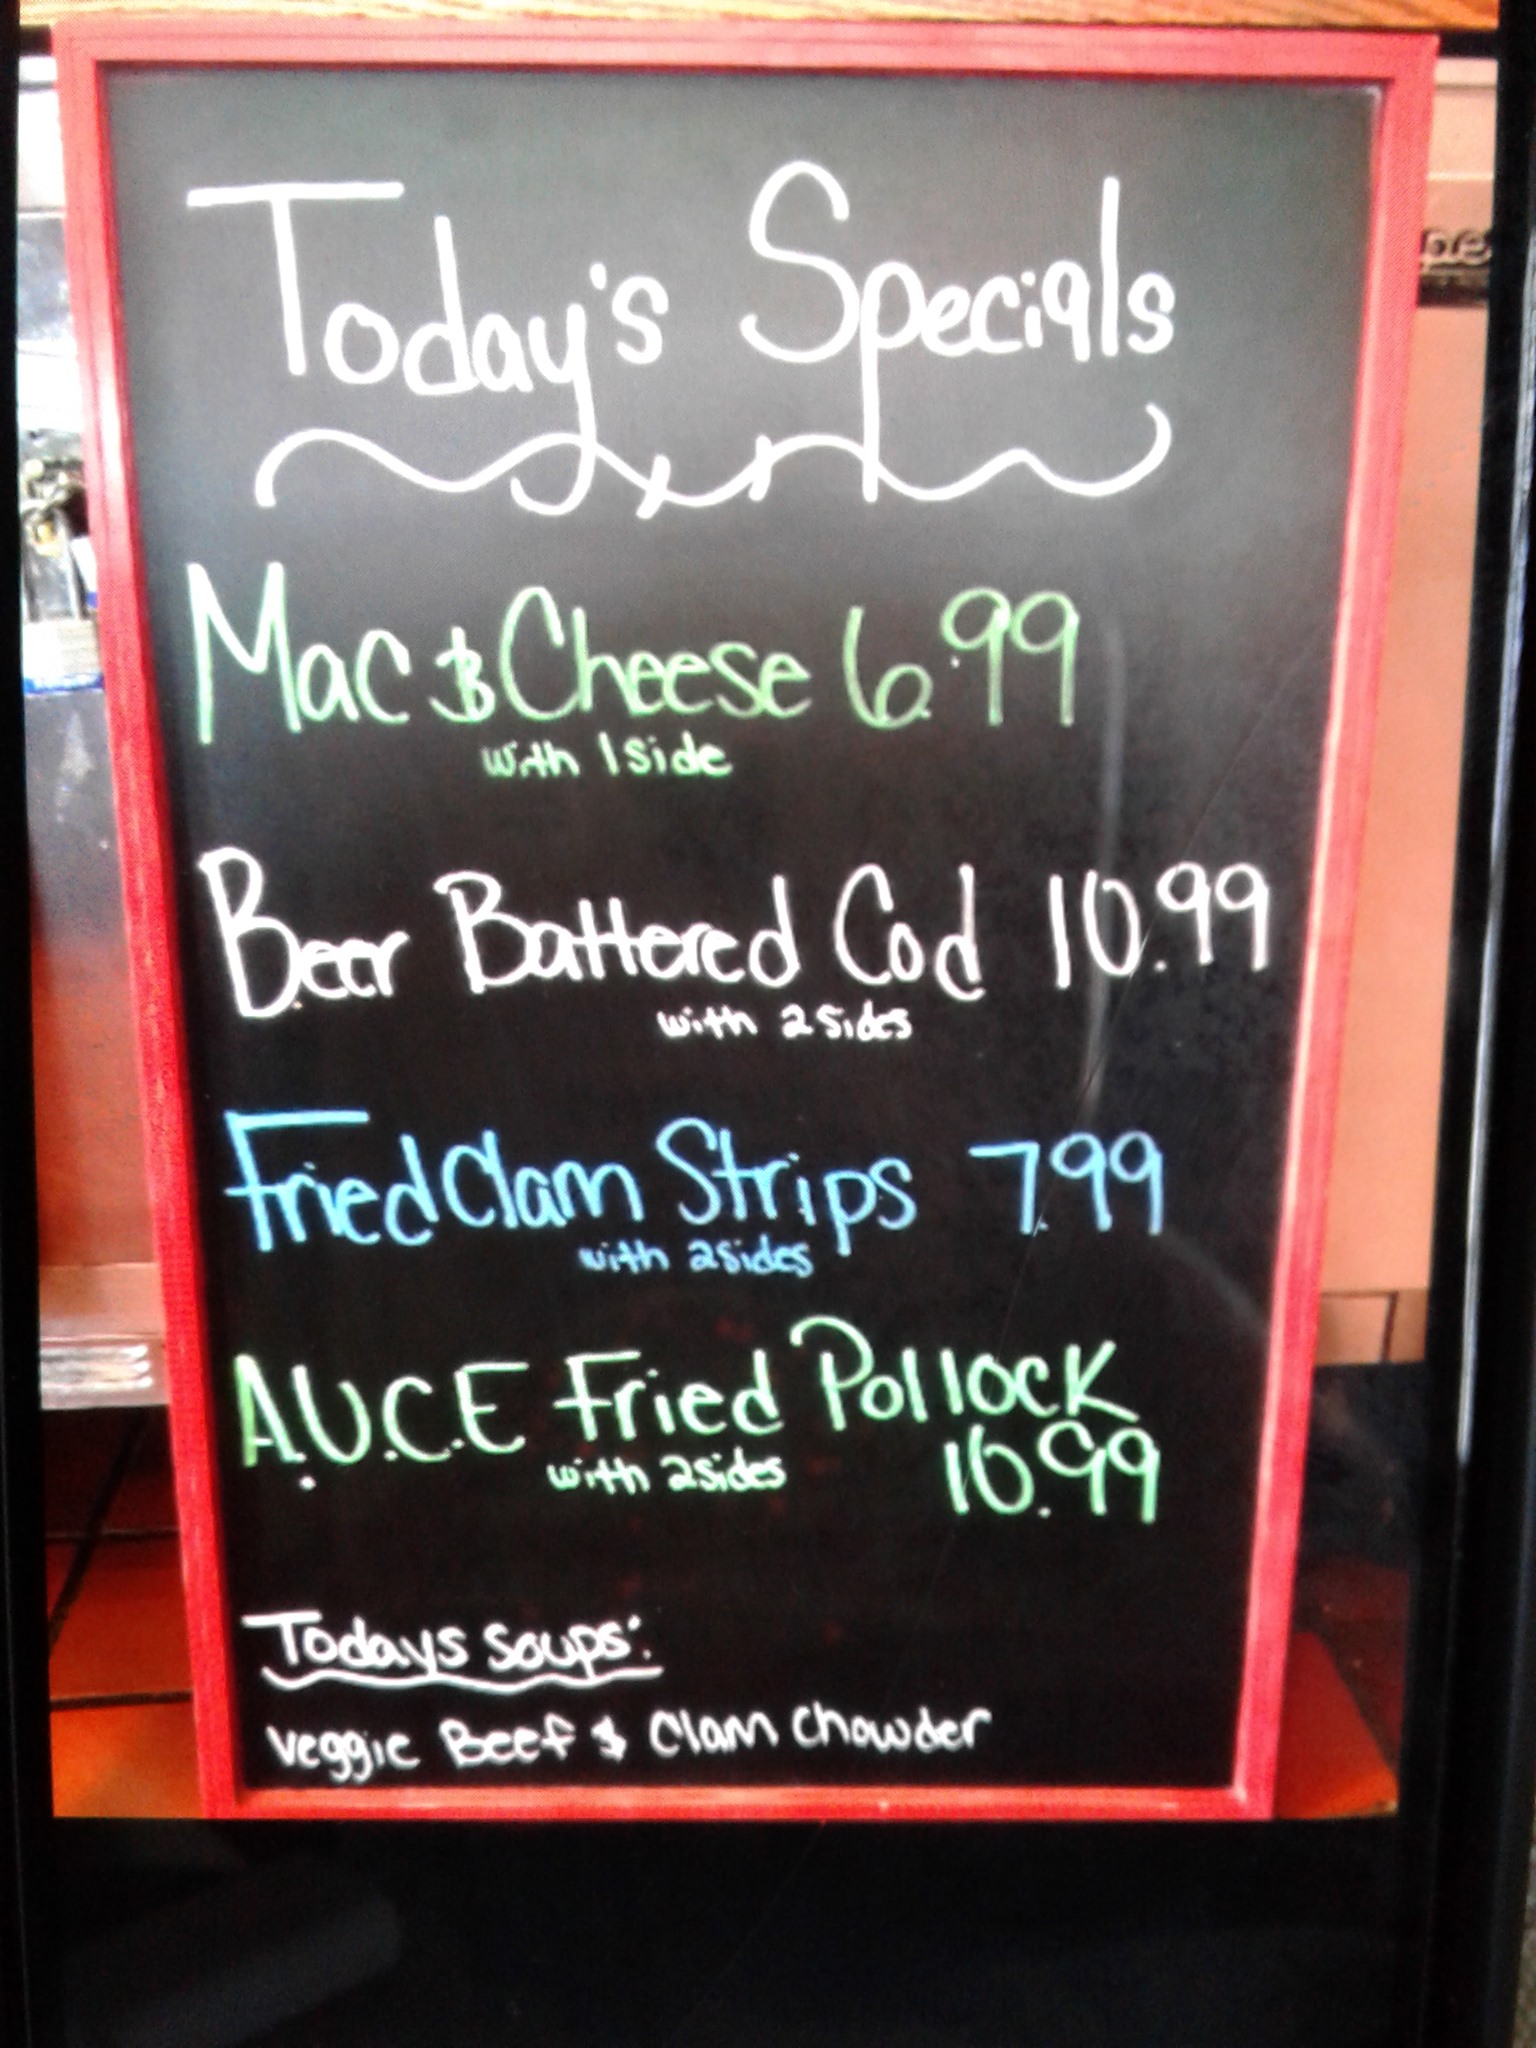 Today's Specials
Mac & Cheese 6.99
with 1 side
Beer Battered Cod 10.99
with 2 sides
Fried Clam Strips 7.99
with 2 sides
A.U.C.E Fried Pollock
with 2 sides 10.99
Todays soups:
Veggie Beef & Clam Chowder